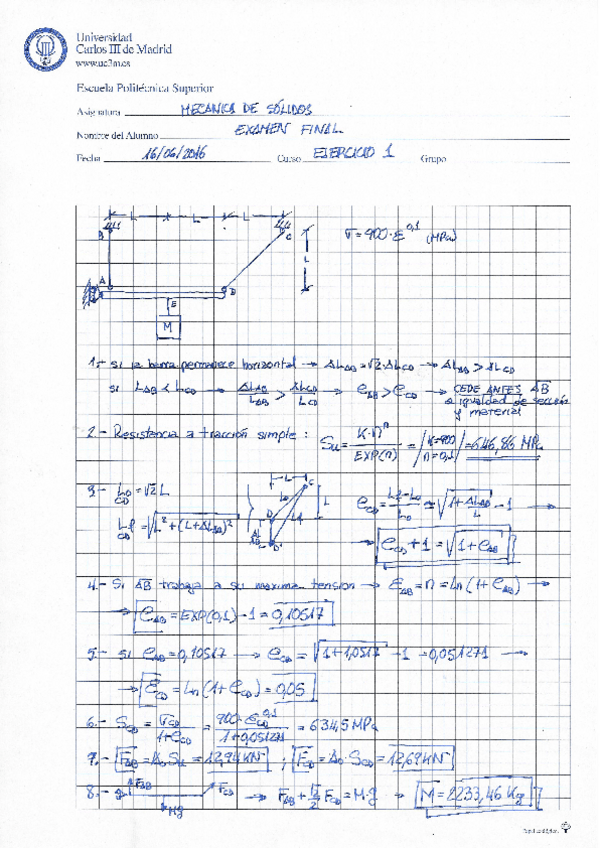 Universidad
Carlos III de Madrid
www.uc3m.es
Escuela Politécnica Superior
Asignatura MECANICA DE SÓLIDOS
Nombre del Alumno EXAMEN FINAL
Fecha 16/06/2016 Curso EJERCICIO 1 Grupo
L L L
B C
σ = 900·ε^0,1 (MPa)
L
A D
E
M
1.- Si la barra permanece horizontal → ΔL_AB = √2·ΔL_CD → ΔL_AB > ΔL_CD
Si L_AB < L_CD → ΔL_AB/L_AB > ΔL_CD/L_CD → e_AB > e_CD → CEDE ANTES AB
a igualdad de sección
y material
2.- Resistencia a tracción simple: Su = K·n^n/EXP(n) = /K=900 n=0,1/ = 646,86 MPa
3.- Lo_CD = √2 L
L
C
Lo
L
D
Lf
D'
e_CD = (Lf-Lo)/Lo = √(1+ΔL_AB/L) - 1 →
Lf_CD = √(L²+(L+ΔL_AB)²)
→ e_CD + 1 = √(1+e_AB)
4.- Si AB trabaja a su maxima tension → ε_AB = n = Ln(1+e_AB) →
→ e_AB = EXP(0,1) - 1 = 0,10517
5.- si e_AB = 0,10517 → e_CD = √(1+1,0517) - 1 = 0,051271 →
→ ε_CD = Ln(1+e_CD) = 0,05
6.- S_CD = σ_CD/(1+e_CD) = 900·ε_CD^0,1/(1+0,05127) = 634,5 MPa
7.- F_AB = A₀·Su = 12,94 KN ; F_CD = A₀·S_CD = 12,69 KN
8.- F_AB F_CD → F_AB + √2/2 F_CD = M·g → M = 2233,46 Kg
Mg